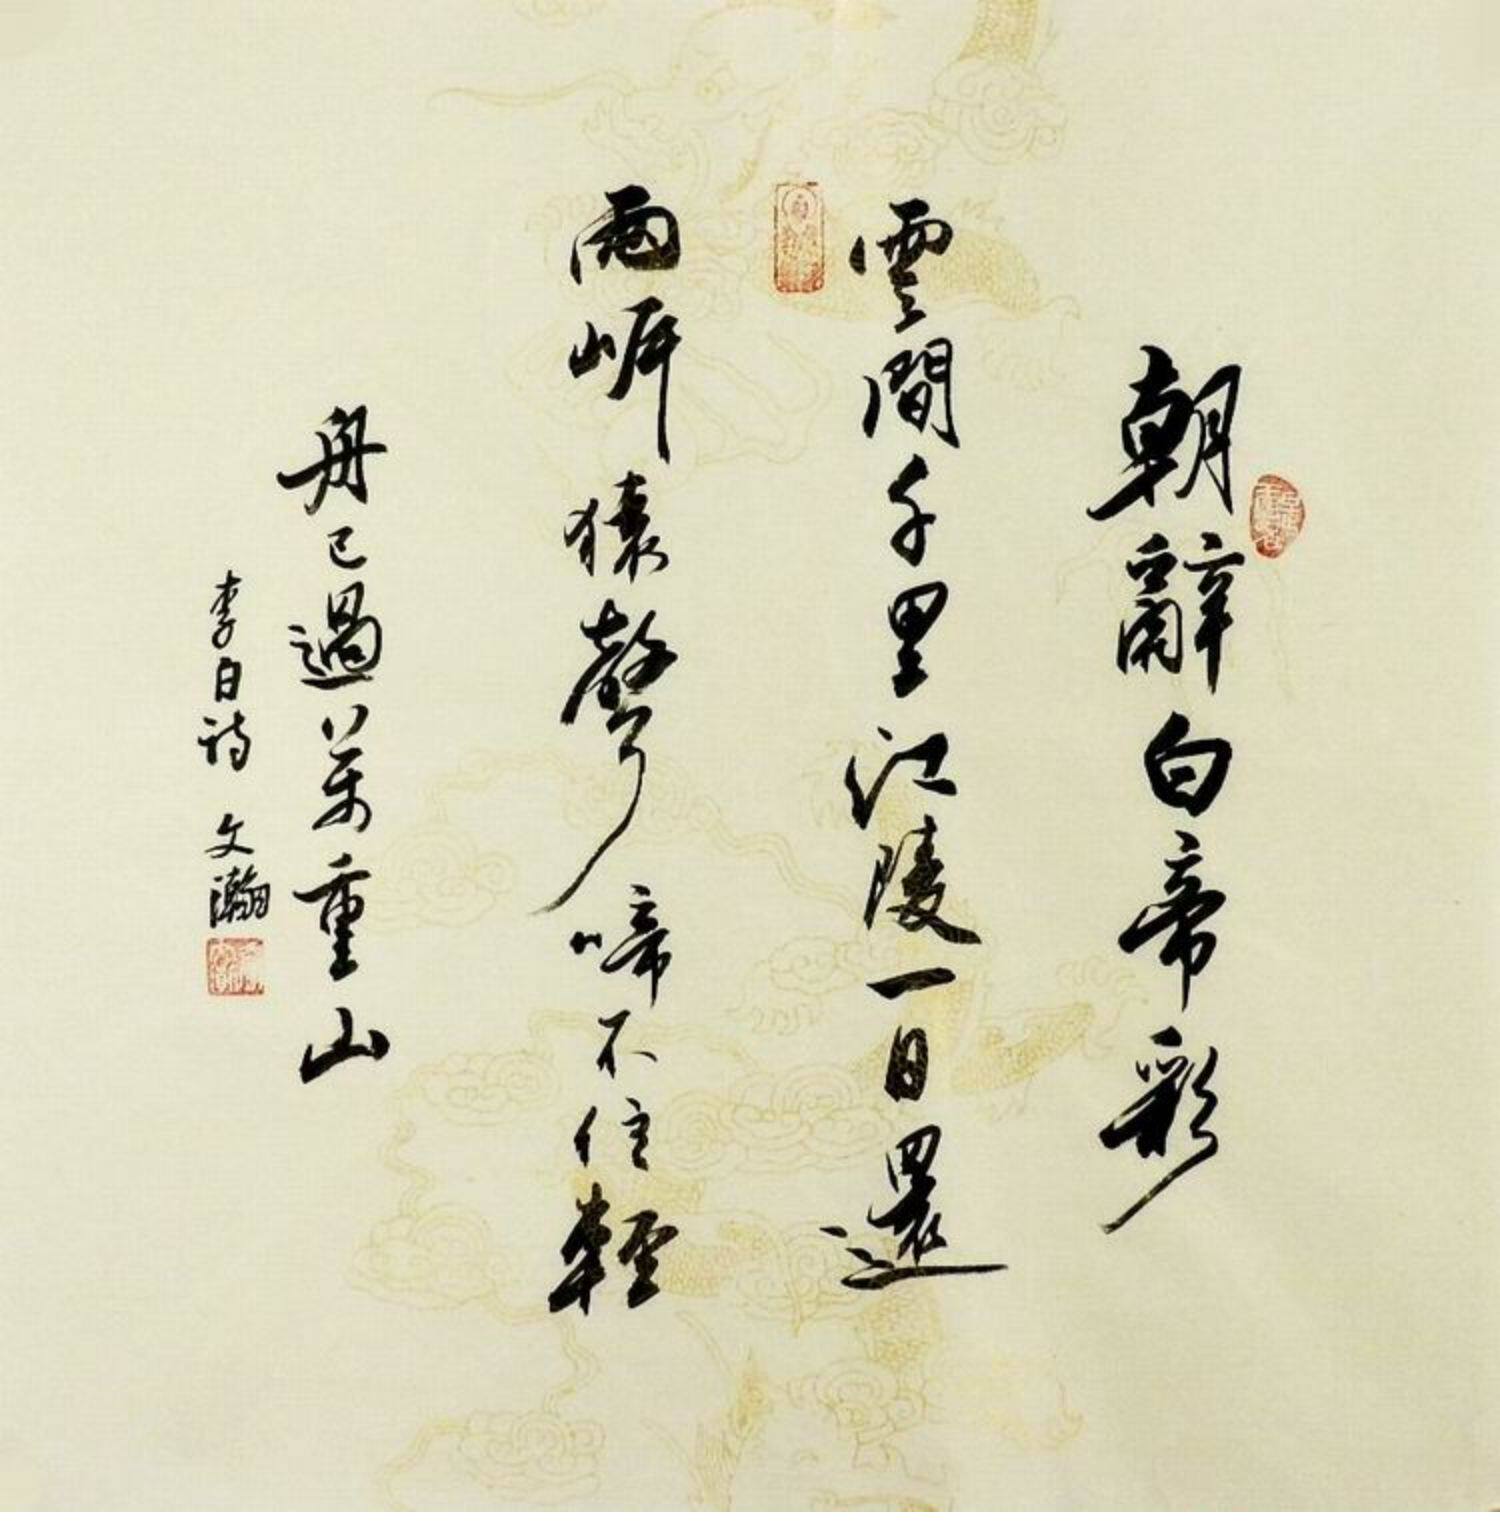 朝辭白帝彩
雲間千里江陵一日還
兩岸猿聲啼不住輕
舟已過萬重山
李白詩 文瀚